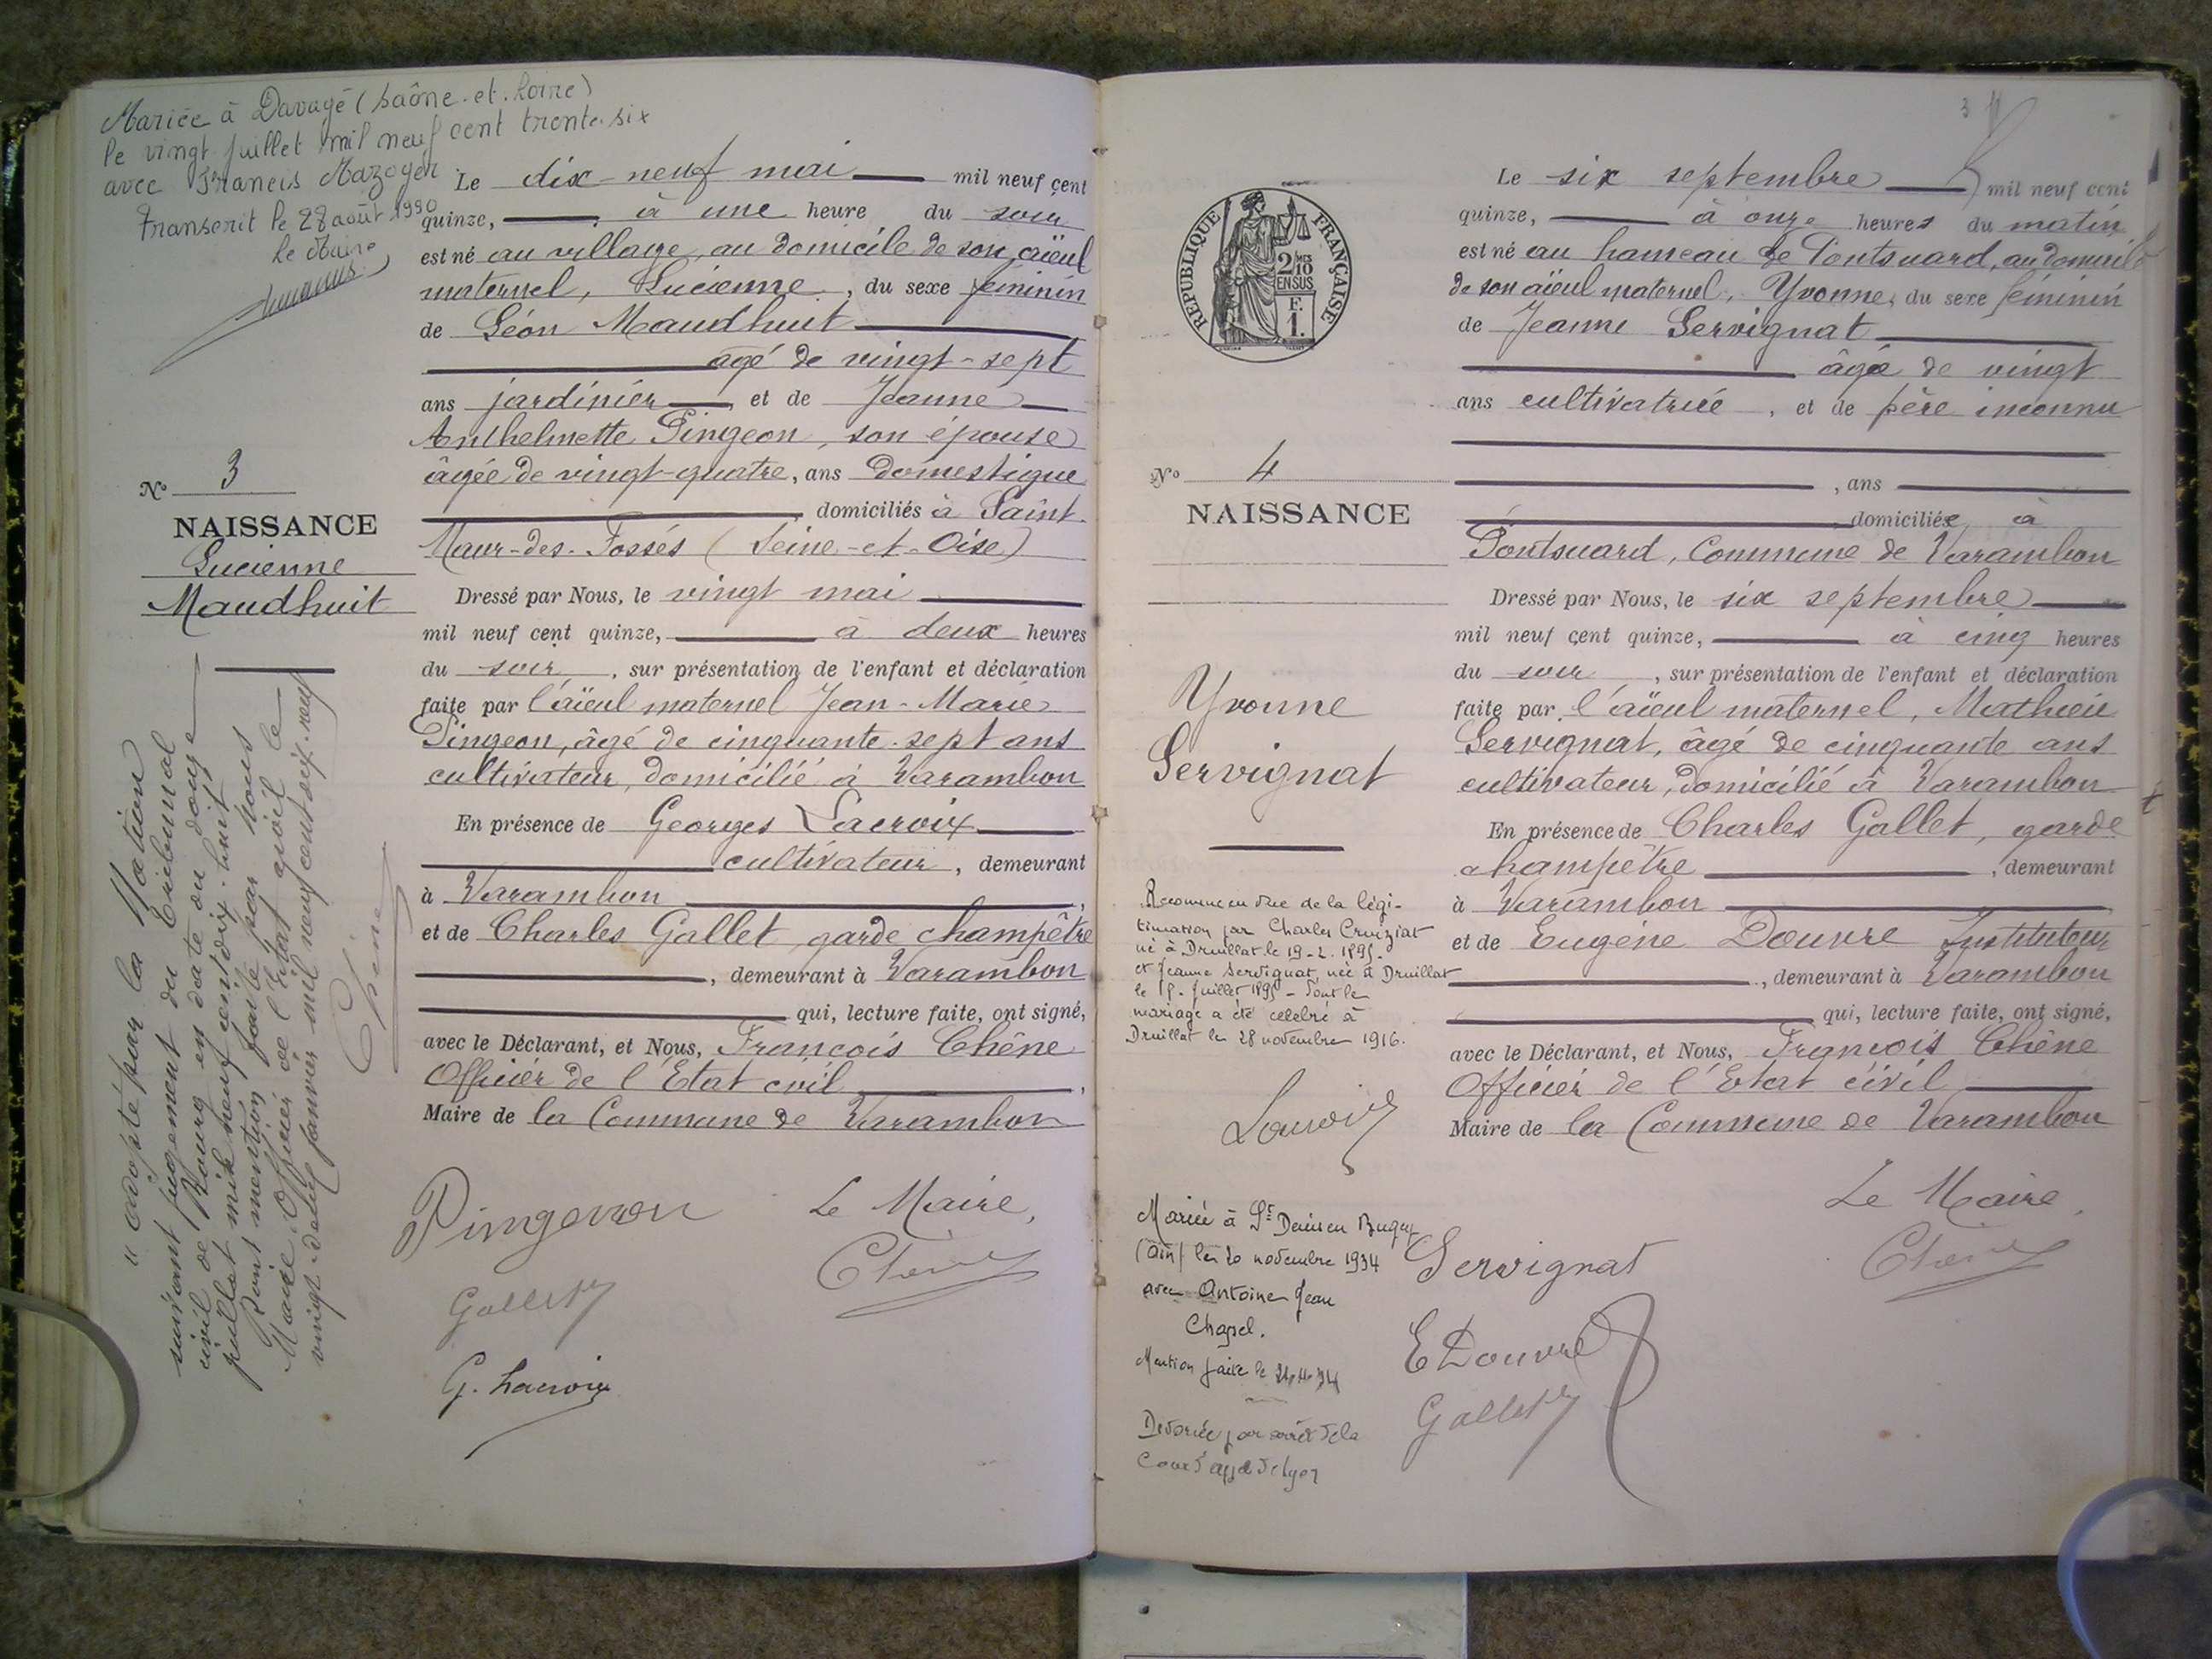 Mariée à Davayé (Saône-et-Loire)
le vingt juillet mil neuf cent trente six
avec Francis Mazoyer
Transcrit le 28 août 1990
Le Maire
Le dix-neuf mai mil neuf cent
quinze, à une heure du soir
est né au village, au domicile de son aïeul
maternel, Lucienne, du sexe féminin
de Léon Maudhuit
âgé de vingt-sept
ans jardinier, et de Jeanne
Anthelmette Pingeon, son épouse
âgée de vingt-quatre, ans domestique
domiciliés à Saint
Maur-des-Fossés (Seine-et-Oise)
Dressé par Nous, le vingt mai
mil neuf cent quinze, à deux heures
du soir, sur présentation de l'enfant et déclaration
faite par l'aïeul maternel Jean-Marie
Pingeon, âgé de cinquante-sept ans
cultivateur, domicilié à Varambon
En présence de Georges Lacroix
cultivateur, demeurant
à Varambon,
et de Charles Gallet garde champêtre
, demeurant à Varambon
qui, lecture faite, ont signé,
avec le Déclarant, et Nous, François Chêne
Officier de l'Etat civil,
Maire de la Commune de Varambon
Nº 3
NAISSANCE
Lucienne
Maudhuit
"adopté par la Nation
suivant jugement du Tribunal
civil de Bourg en date du douze
juillet mil neuf cent dix-huit"
Dont mention faite par nous
Maire Officier de l'Etat civil le
vingt-deux janvier mil neuf cent dix-neuf
Chêne
Pingeon
Le Maire,
Chêne
Gallet
G. Lacroix
3
REPUBLIQUE FRANÇAISE
2/10 EN SUS
F. 1.
Le six septembre mil neuf cent
quinze, à onze heures du matin
est né au hameau de Pontsuard, au domicile
de son aïeul maternel, Yvonne, du sexe féminin
de Jeanne Servignat
âgée de vingt
ans cultivatrice, et de père inconnu
, ans
domiciliée à
Pontsuard, Commune de Varambon
Dressé par Nous, le six septembre
mil neuf cent quinze, à cinq heures
du soir, sur présentation de l'enfant et déclaration
faite par l'aïeul maternel, Mathieu
Servignat, âgé de cinquante ans
cultivateur, domicilié à Varambon
En présence de Charles Gallet, garde
champêtre, demeurant
à Varambon
et de Eugène Douvre Instituteur
, demeurant à Varambon
qui, lecture faite, ont signé,
avec le Déclarant, et Nous, François Chêne
Officier de l'Etat civil
Maire de la Commune de Varambon
Nº 4
NAISSANCE
Yvonne
Servignat
Reconnue en vue de la légi-
timation par Charles Cruiziat
né à Druillat le 19-2.1895-
et Jeanne Servignat, née à Druillat
le juillet 1895 - dont le
mariage a été célébré à
Druillat le 28 novembre 1916.
Mariée à St Denis en Bugey
(Ain) le 20 novembre 1934
avec Antoine Jean
Chapel.
Mention faite le
Divorcée par arrêt de la
Cour d'appel de Lyon
Le Maire,
Chêne
Servignat
E Douvre
Gallet